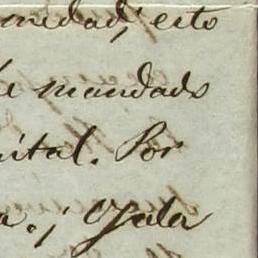 onedad; esto
he mandado
pital. Por
a.; Ojala